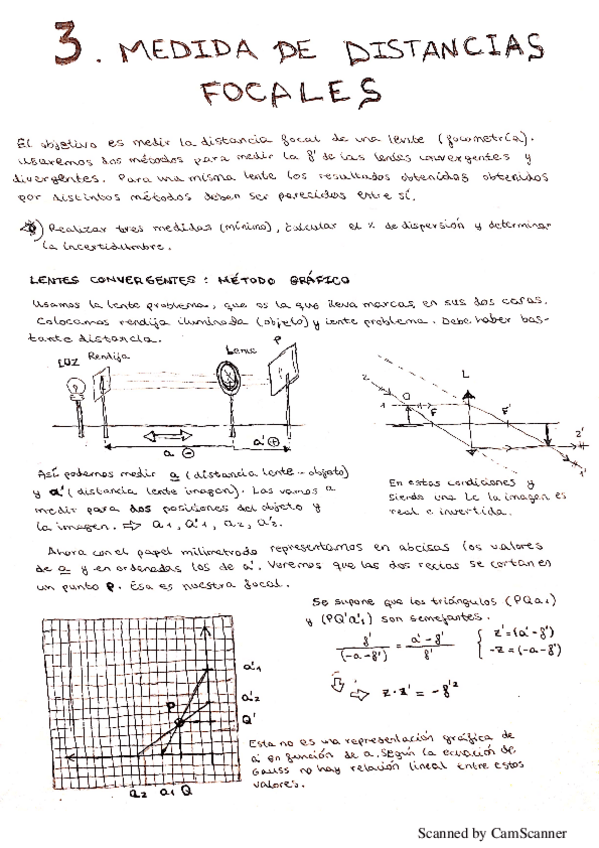 3. MEDIDA DE DISTANCIAS
FOCALES
El objetivo es medir la distancia focal de una lente (focometría).
Usaremos dos métodos para medir la f' de las lentes convergentes y
divergentes. Para una misma lente los resultados obtenidos obtenidos
por distintos métodos deben ser parecidos entre sí.
Realizar tres medidas (mínimo), calcular el % de dispersión y determinar
la incertidumbre.
LENTES CONVERGENTES: MÉTODO GRÁFICO
Usamos la lente problema, que es la que lleva marcas en sus dos caras.
Colocamos rendija iluminada (objeto) y lente problema. Debe haber bas-
tante distancia.
LUZ Rendija Lente P
a ⊖ a' ⊕
z 1 O F L F' z' 1'
Así podemos medir a (distancia lente - objeto)
y a' (distancia lente imagen). Las vamos a
medir para dos posiciones del objeto y
la imagen. ⇒ a1, a'1, a2, a'2.
En estas condiciones y
siendo una Lc la imagen es
real e invertida.
Ahora con el papel milimetrado representamos en abcisas los valores
de a y en ordenadas los de a'. Veremos que las dos rectas se cortan en
un punto P. Esa es nuestra focal.
Se supone que los triángulos (PQa1)
y (PQ'a'1) son semejantes.
f'/(-a-f') = a'-f'/f' { z'=(a'-f') -z=(-a-f')
⇒ z·z' = -f'²
a'1
a'2
P
Q'
a2 a1 Q
Esta no es una representación gráfica de
a' en función de a. Según la ecuación de
Gauss no hay relación lineal entre estos
valores.
Scanned by CamScanner